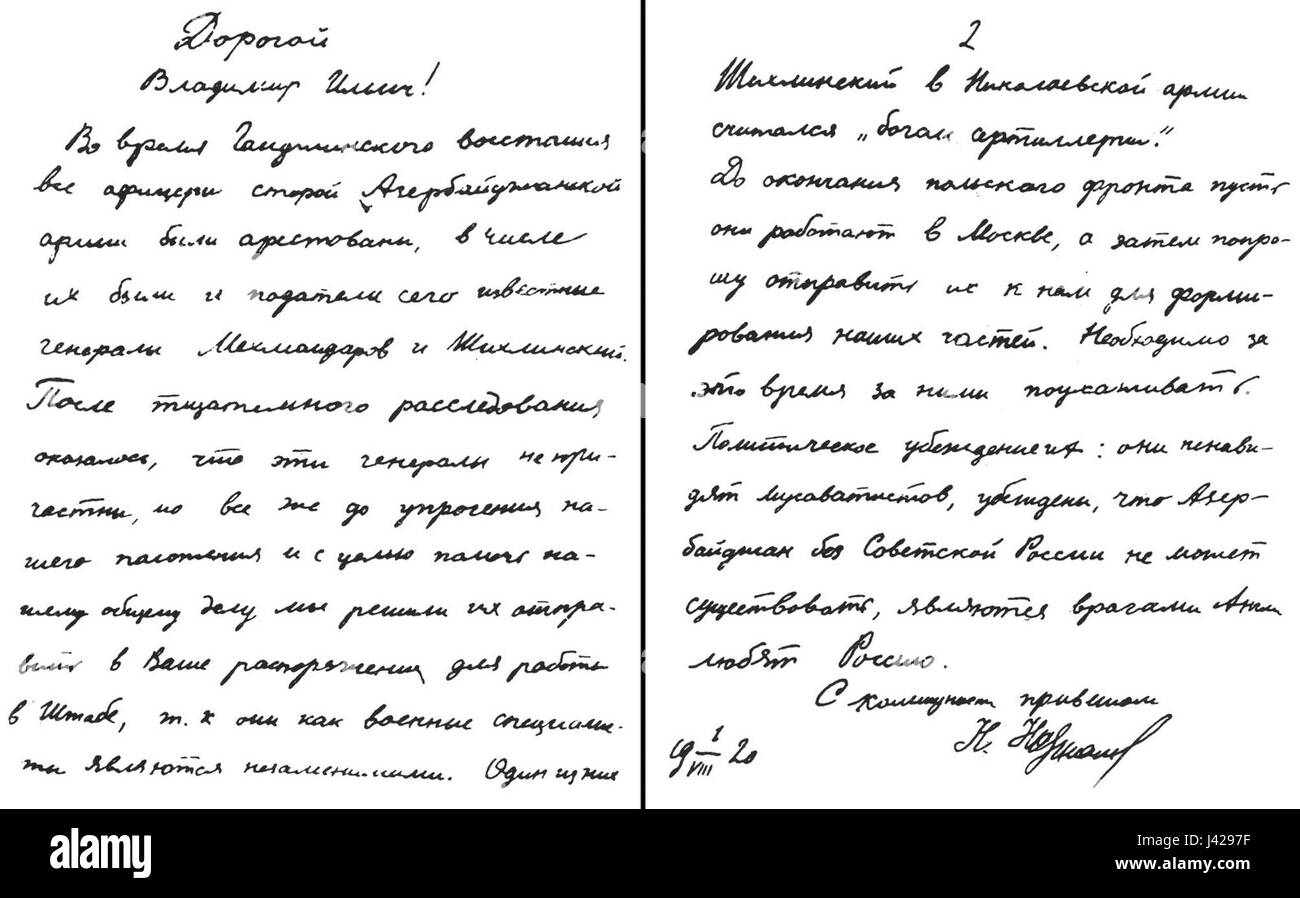 Дорогой
Владимир Ильич!
Во время Гандминского восстания
все офицеры старой Азербайджанской
армии были арестованы, в числе
их были и податели сего известные
генералы Мехмандаров и Шихлинский.
После тщательного расследования
оказалось, что эти генералы не при-
частны, но все же до упрочения на-
шего положения и с целью помочь на-
шему общему делу мы решили их отпра-
вить в Ваше распоряжение для работы
в Штабе, т. к они как военные специалис-
ты являются незаменимыми. Один из них
2
Шихлинский в Николаевской армии
считался „богом артиллерии".
До окончания польского фронта пусть
они работают в Москве, а затем попро-
шу отправить их к нам для форми-
рования наших частей. Необходимо за
это время за ними поухаживать.
Политическое убеждение их: они ненави-
дят мусаватистов, убеждены, что Азер-
байджан без Советской России не может
существовать, являются врагами Англии
любят Россию.
С коммунист приветом
Н. Нариманов
19 1/VIII 20
alamy stock photo
J4297F